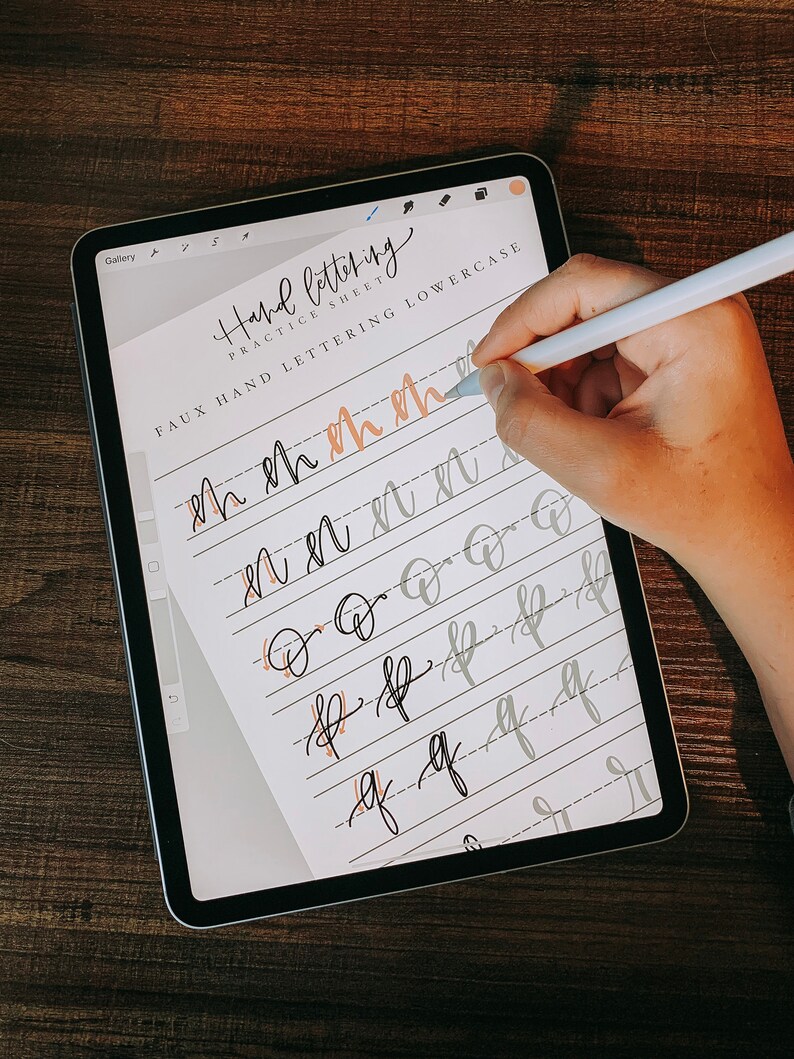 Gallery
Hand lettering
PRACTICE SHEET
FAUX HAND LETTERING LOWERCASE
m m m m
n n n n
o o o o o
p p p p p
q q q q
r r